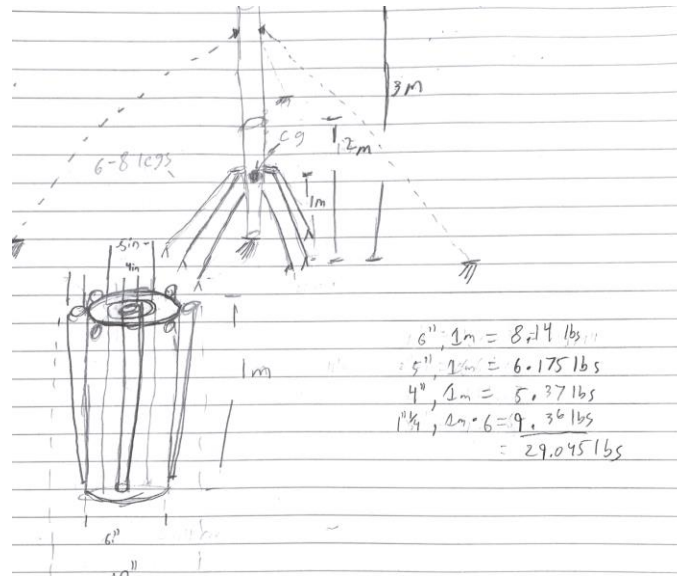 3m
cg
2m
6-8 legs
1m
5in
4in
1m
6", 1m = 8.14 lbs
5", 1m = 6.175 lbs
4", 1m = 5.37 lbs
1"1/4, 1m · 6 = 9.36 lbs
= 29.045 lbs
6"
10"